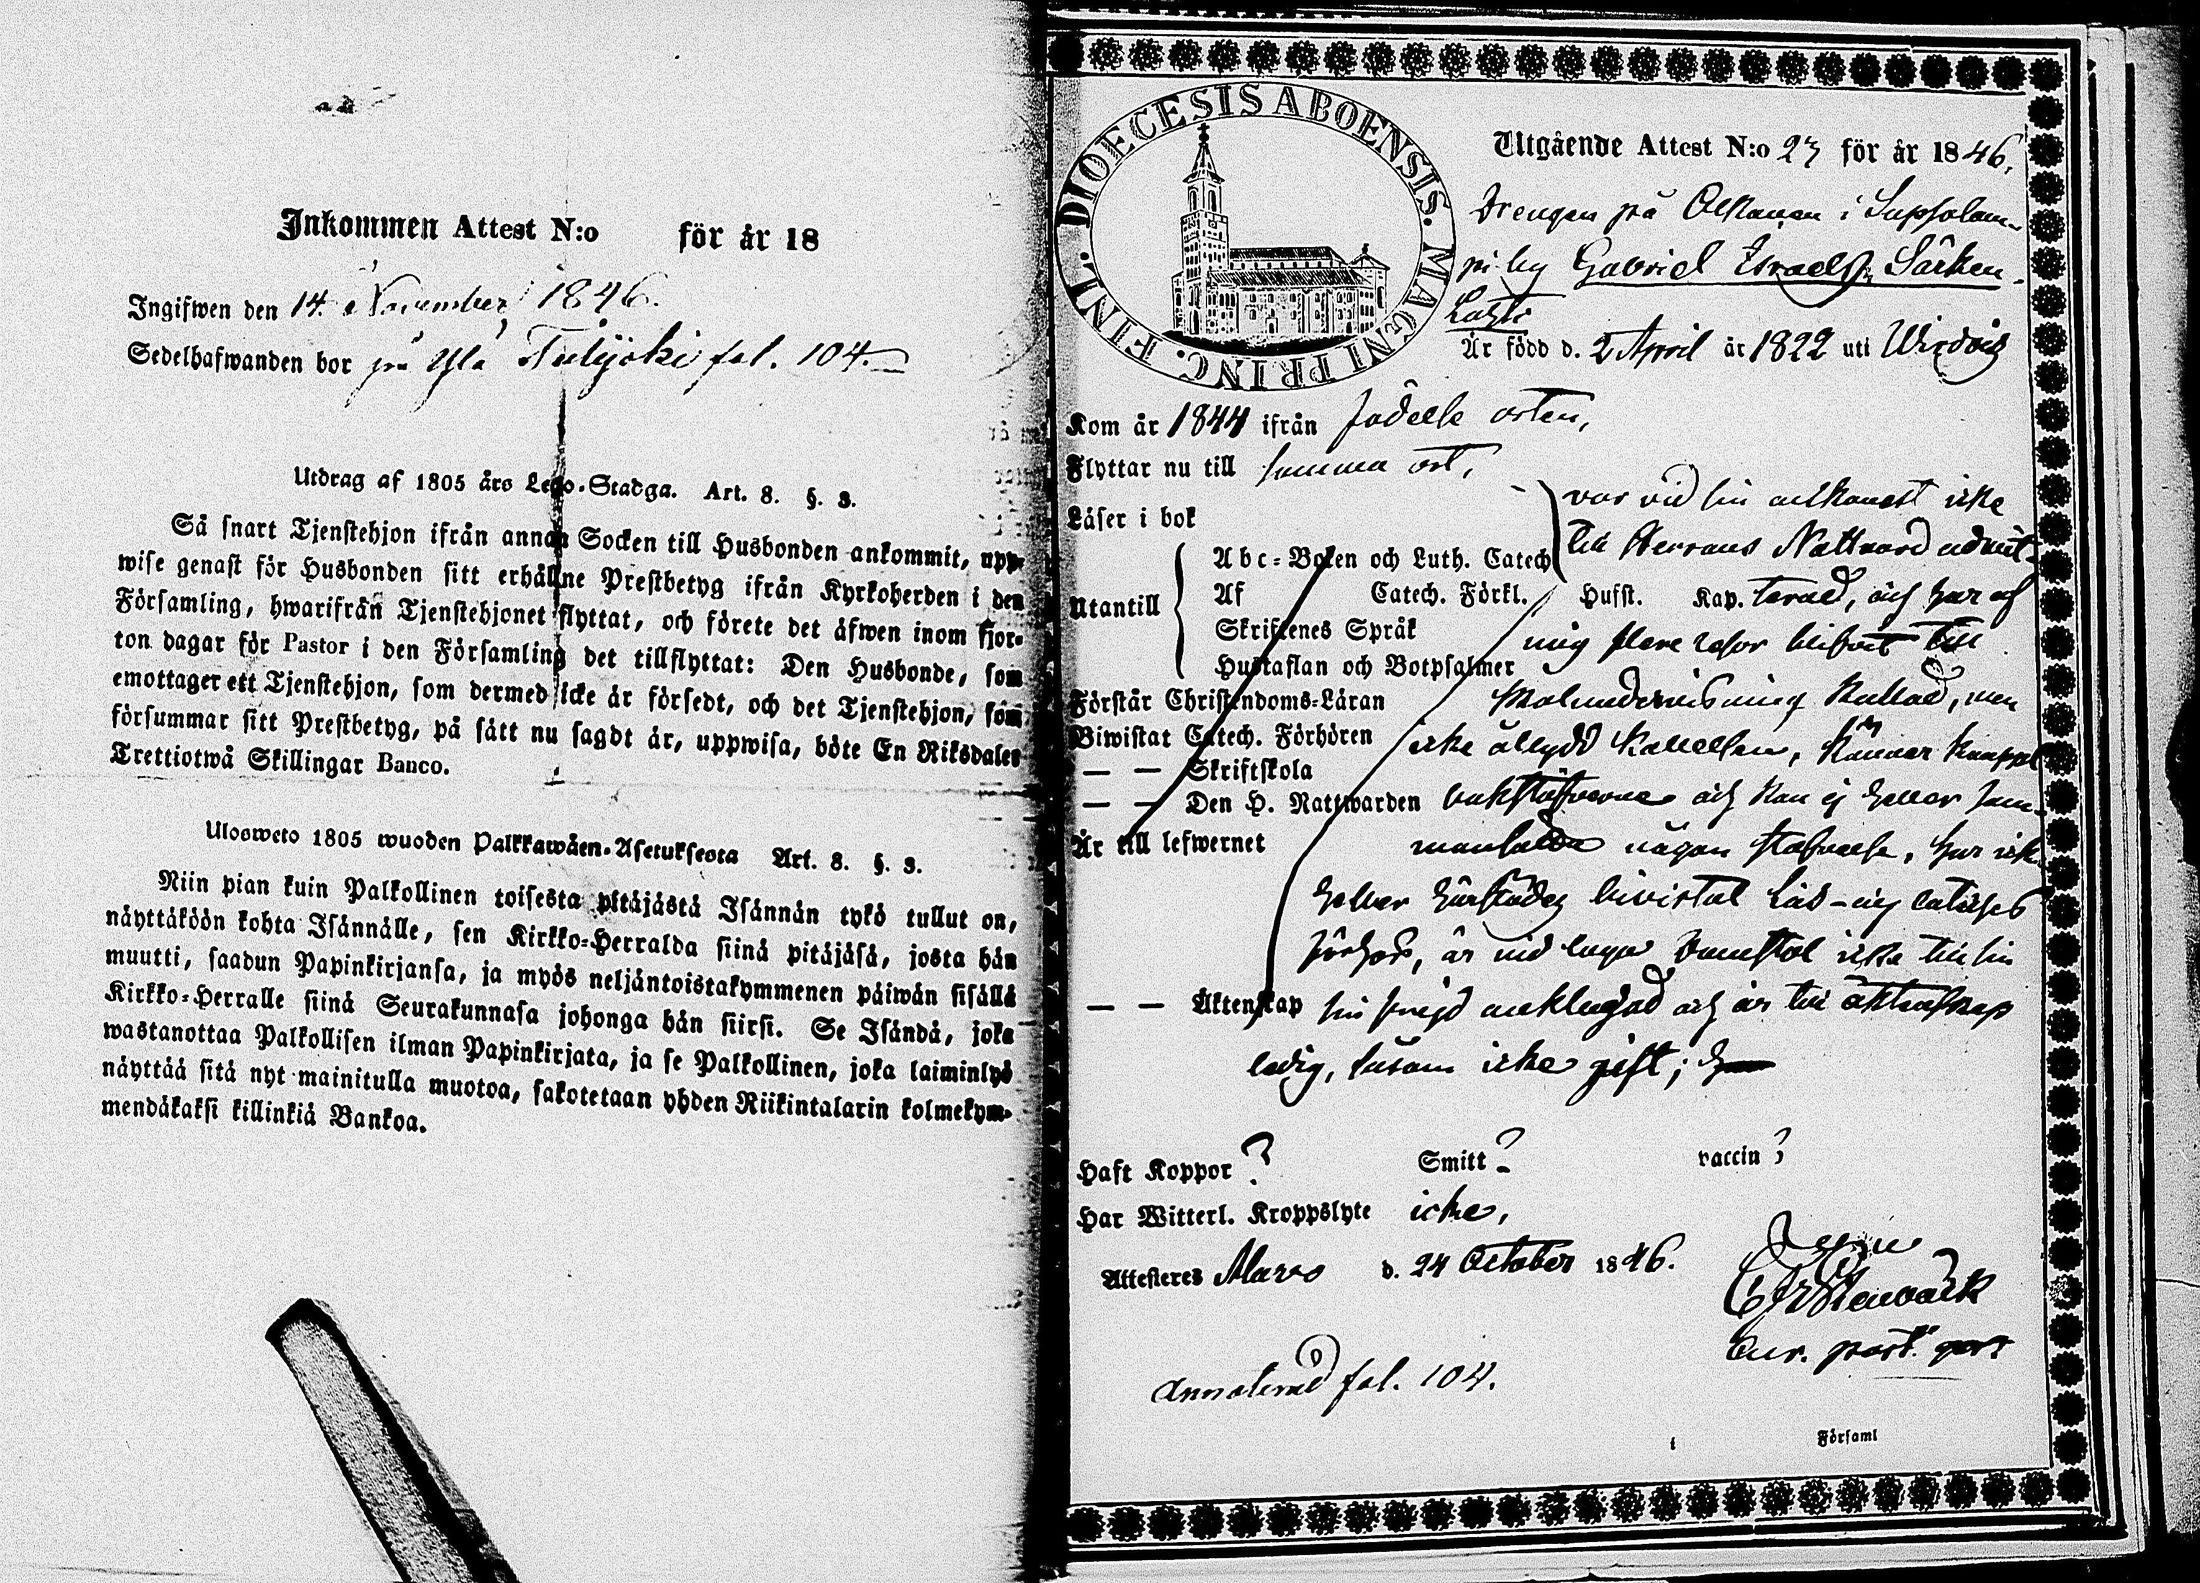 Inkommen Attest N:o för år 18
Ingifwen den 14. November 1846.
Sedelhafwanden bor på Ylä Tulijoki fol. 104.
Utdrag af 1805 års Lego-Stadga. Art. 8. §. 3.
Så snart Tjenstehjon ifrån annan Socken till Husbonden ankommit, upp-
wise genast för Husbonden sitt erhållne Prestbetyg ifrån Kyrkoherden i den
Församling, hwarifrån Tjenstehjonet flyttat, och förete det äfwen inom fjor-
ton dagar för Pastor i den Församling det tillflyttat: Den Husbonde, som
emottager ett Tjenstehjon, som dermed icke är försedt, och det Tjenstehjon, som
försummar sitt Prestbetyg, på sätt nu sagdt är, uppwisa, böte En Riksdaler
Trettiotwå Skillingar Banco.
Ulosweto 1805 wuoden Palkkawäen-Asetuksesta Art. 8. §. 3.
Niin pian kuin Palkollinen toisesta pitäjästä Isännän tykö tullut on,
näyttäköön kohta Isännälle, sen Kirkko-Herralda siinä pitäjäsä, josta hän
muutti, saadun Papinkirjansa, ja myös neljäntoistakymmenen päiwän sisällä
Kirkko-Herralle siinä Seurakunnasa johonga hän siirsi. Se Isändä, joka
wastanottaa Palkollisen ilman Papinkirjata, ja se Palkollinen, joka laiminlyö
näyttää sitä nyt mainitulla muotoa, sakotetaan yhden Riikintalarin kolmekym-
mendäkaksi killinkiä Bankoa.
DIOECESIS ABOENSIS. MAGNI PRINC. FINL.
Utgående Attest N:o 23 för år 1846.
Drengen på Alkanan i
by Gabriel Israels Särken
Är född d. 2 April år 1822 uti
Kom år 1844 ifrån orten,
Flyttar nu till samma ort,
Läser i bok var vid sin ankomst icke
Abc-Boken och Luth. Catech till Herrans Nattvard admit-
Utantill Af Catech. Förkl. Hufst. Kap. terad, och har af
Skriftenes Språk mig flere resor blifvit till
Hustaflan och Botpsalmer
Förstår Christendoms-Läran skolundervisning kallad, men
Biwistat Catech. Förhören icke åtlydt kallelsen, känner knappt
— — Skriftskola
— — Den H. Nattwarden bokstäfverna och kan ej heller sam-
Är till lefwernet någon stafvelse, har icke
heller härstädes bivistat Läs- och Catiches
förhör, är vid laga Domstol icke till sin
— — Äktenskap sin frejd anklagad och är till äktenskap
ledig, såsom icke gift;
Haft Koppor ? Smitt ? vaccin ?
Har Witterl. Kroppslyte icke,
Attesteras d. 24 October 1846.
Cur. past. gers
Annoterad fol. 104.
i Församl